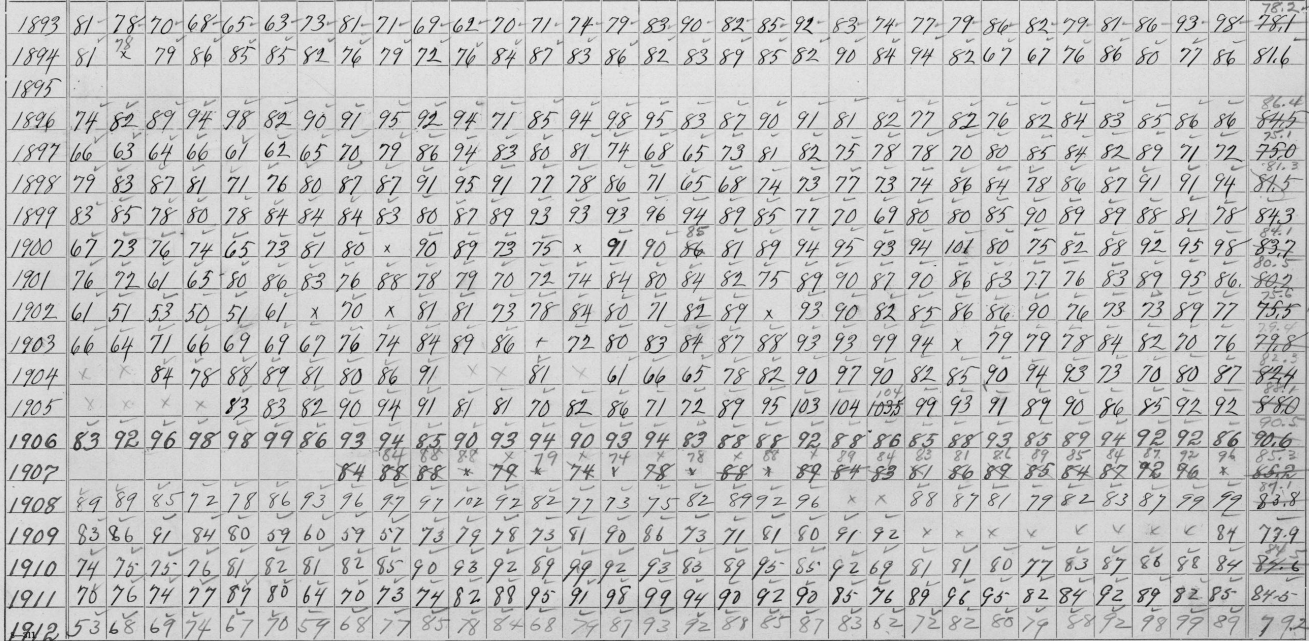 1893 81 78 70 68 65 63 73 81 71 69 62 70 71 74 79 83 90 82 85 92 83 74 77 79 86 82 79 81 86 93 98 78.1 78.2
1894 81 x 78 79 86 85 85 82 76 79 72 76 84 87 83 86 82 83 89 85 82 90 84 94 82 67 67 76 86 80 77 86 81.6
1895
1896 74 82 89 94 98 82 90 91 95 92 94 71 85 94 98 95 83 87 90 91 81 82 77 82 76 82 84 83 85 86 86 84.5 86.4
1897 66 63 64 66 61 62 65 70 79 86 94 83 80 81 74 68 65 73 81 82 75 78 78 70 80 85 84 82 89 71 72 75.0 75.1
1898 79 83 87 81 71 76 80 87 87 91 95 91 77 78 86 71 65 68 74 73 77 73 74 86 84 78 86 87 91 91 94 81.5 81.3
1899 83 85 78 80 78 84 84 84 83 80 87 89 93 93 93 96 94 89 85 77 70 69 80 80 85 90 89 89 88 81 78 84.3
1900 67 73 76 74 65 73 81 80 x 90 89 73 75 x 91 90 86 85 81 89 94 95 93 94 101 80 75 82 88 92 95 98 83.7 84.1
1901 76 72 61 65 80 86 83 76 88 78 79 70 72 74 84 80 84 82 75 89 90 87 90 86 83 77 76 83 89 95 86. 80.2 80.5
1902 61 51 53 50 51 61 x 70 x 81 81 73 78 84 80 71 82 89 x 93 90 82 85 86 86 90 76 73 73 89 77 75.5
1903 66 64 71 66 69 69 67 76 74 84 89 86 + 72 80 83 84 87 88 93 93 99 94 x 79 79 78 84 82 70 76 79.8 79.4
1904 x x 84 78 88 89 81 80 86 91 x x 81 x 61 66 65 78 82 90 97 90 82 85 90 94 93 73 70 80 87 82.4 82.3
1905 x x x x 83 83 82 90 94 91 81 81 70 82 86 71 72 89 95 103 104 104 99 93 91 89 90 86 85 92 92 88.0
1906 83 92 96 98 98 99 86 93 94 85 90 93 94 90 93 94 83 88 88 92 88 86 85 88 93 85 89 94 92 92 86 90.6 90.5
84 88 88 x 79 x 74 x 78 x 88 x 89 84 83 81 86 89 85 84 87 92 96 85.2
1907 84 88 88 x 79 x 74 x 78 x 88 x 89 84 83 81 86 89 85 84 87 92 96 x 85.2
1908 89 89 85 72 78 86 93 96 97 97 102 92 82 77 73 75 82 89 92 96 x x 88 87 81 79 82 83 87 99 99 83.8 87.1
1909 83 86 91 84 80 59 60 59 57 73 79 78 73 81 90 86 73 71 81 80 91 92 x x x x x x x x 84 77.9
1910 74 75 75 76 81 82 81 82 85 90 93 92 89 99 92 93 83 89 95 85 92 69 81 81 80 77 83 87 86 88 84
1911 70 76 74 77 87 80 64 70 73 74 82 88 95 91 98 99 94 90 92 90 85 76 89 96 95 82 84 92 89 82 85 84.5
1912 53 68 69 74 67 70 59 68 77 85 78 84 68 79 87 93 92 88 85 87 83 62 72 82 80 79 88 92 98 99 89